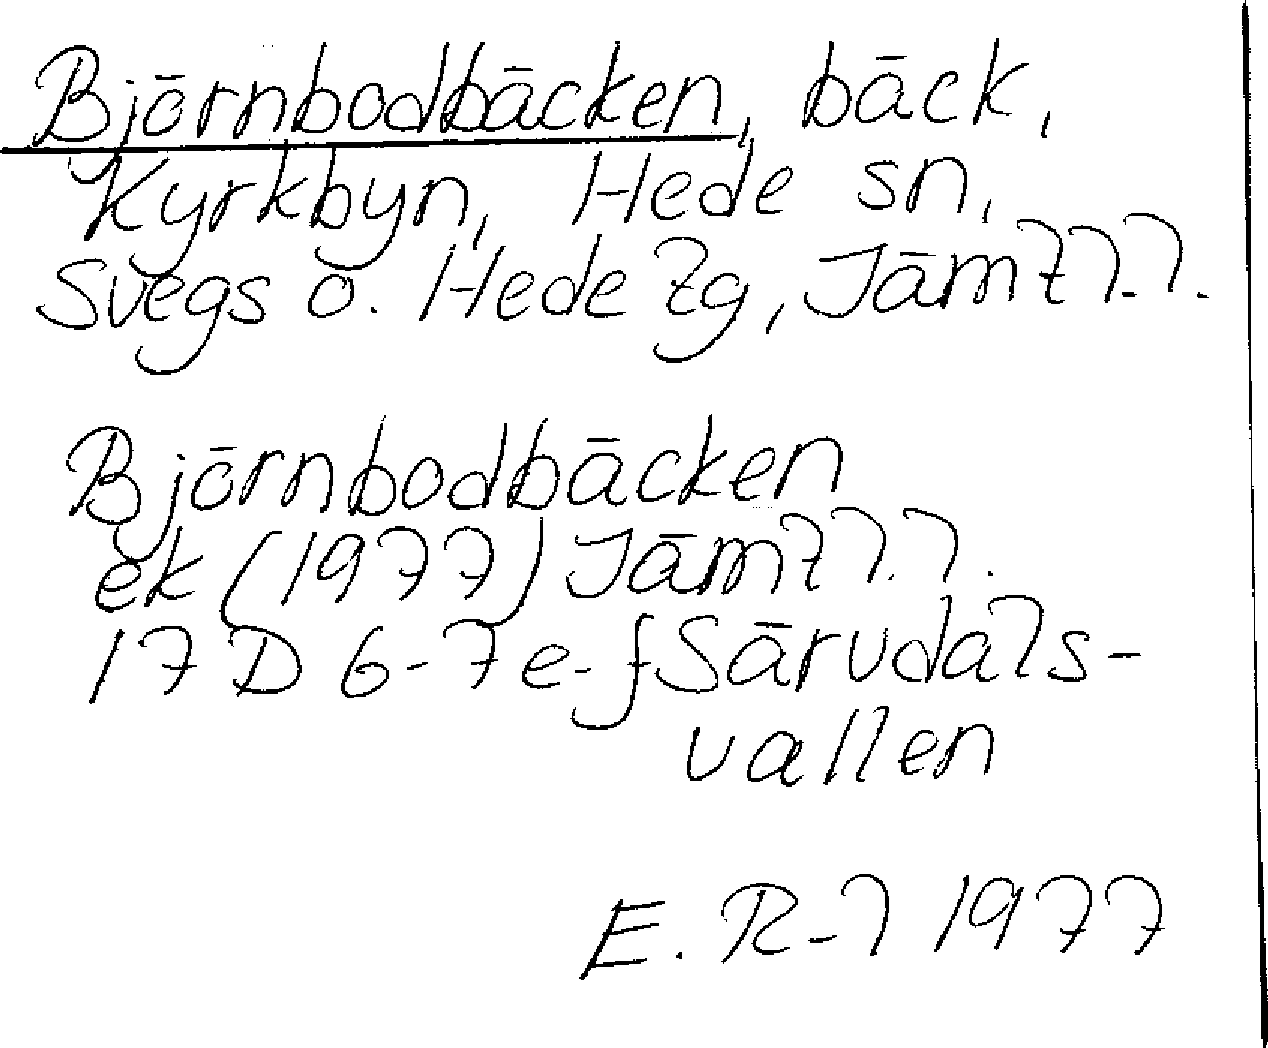 Björnbodbäcken, bäck,
Kyrkbyn, Hede sn,
Svegs o. Hede tg, Jämtl.l.
Björnbodbäcken
ek (1977) Jämtl.l.
17 D 6-7e-f Särvdals-
vallen
E. R-l 1977